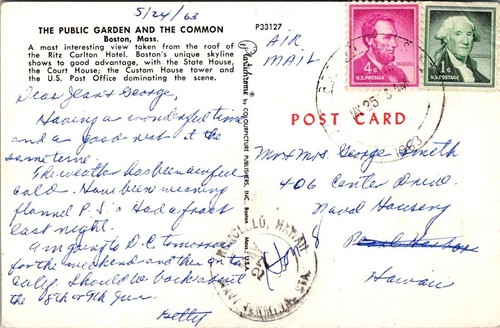 5/24/63
THE PUBLIC GARDEN AND THE COMMON
Boston, Mass.
A most interesting view taken from the roof of
the Ritz Carlton Hotel. Boston's unique skyline
shows to good advantage, with the State House,
the Court House; the Custom House tower and
the U.S. Post Office dominating the scene.
Dear Jean & George,
Having a wonderful time
and a good rest at the
same time.
The weather has been awful
cold. Have been wearing
flannel P.J.'s. Had a frost
last night.
Am going to D.C. tomorrow
for the weekend and then on to
Calif. Should be back about
the 8th or 9th June.
Betty
P33127
Plastichrome ® by COLOURPICTURE PUBLISHERS, INC., Boston
Mass. U.S.A.
AIR
MAIL
4¢
U.S. POSTAGE
1¢
U.S. POSTAGE
25
AM
1963
POST CARD
Mr & Mrs. George Smith
406 Center Drive
Naval Housing
Pearl Harbor
Hawaii
Hono 8
HAWAII
27